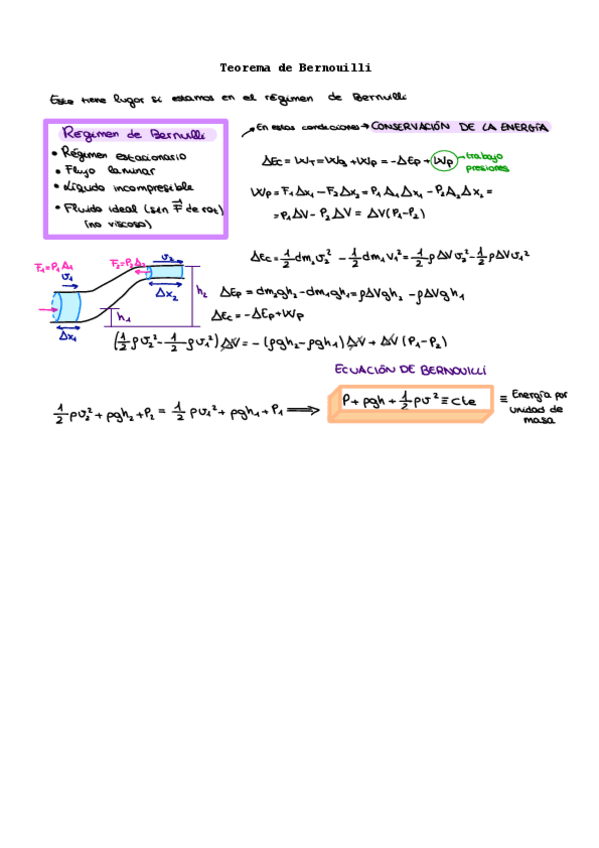 Teorema de Bernouilli
Esto tiene lugar si estamos en el régimen de Bernulli
Régimen de Bernulli
• Régimen estacionario
• Flujo laminar
• Líquido incompresible
• Fluido ideal (sin F⃗ de roz)
(no viscoso)
En estas condiciones → CONSERVACIÓN DE LA ENERGÍA
ΔEc = WT = Wg + Wp = -ΔEp + Wp → trabajo
presiones
Wp = F₁Δx₁ - F₂Δx₂ = P₁A₁Δx₁ - P₂A₂Δx₂ =
= P₁ΔV - P₂ΔV = ΔV(P₁-P₂)
F₁=P₁A₁
v₁
F₂=P₂A₂
v₂
Δx₂
h₂
h₁
Δx₁
ΔEc = 1/2 dm₂v₂² - 1/2 dm₁v₁² = 1/2 ρΔVv₂² - 1/2 ρΔVv₁²
ΔEp = dm₂gh₂ - dm₁gh₁ = ρΔVgh₂ - ρΔVgh₁
ΔEc = -ΔEp + Wp
(1/2 ρv₂² - 1/2 ρv₁²)ΔV = -(ρgh₂ - ρgh₁)ΔV + ΔV(P₁-P₂)
ECUACIÓN DE BERNOUILLI
1/2 ρv₂² + ρgh₂ + P₂ = 1/2 ρv₁² + ρgh₁ + P₁ ⟹
P + ρgh + 1/2 ρv² ≡ cte
≡ Energía por
unidad de
masa